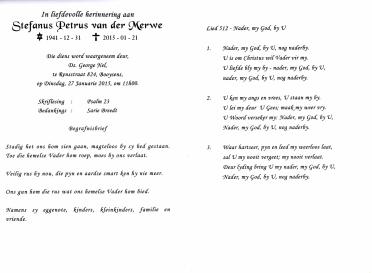 In liefdevolle herinnering aan
Stefanus Petrus van der Merwe
1941 - 12 - 31 2015 - 01 - 21
Die diens word waargeneem deur,
Ds. George Nel,
te Rensstraat 824, Booysens,
op Dinsdag, 27 Januarie 2015, om 11h00.
Skriflesing : Psalm 23
Bedankings : Sarie Breedt
Begrafnisbrief
Stadig het ons hom sien gaan, magteloos by sy bed gestaan.
Toe die hemelse Vader hom roep, moes hy ons verlaat.
Veilig rus hy nou, die pyn en aardse smart ken hy nie meer.
Ons gun hom die rus wat ons hemelse Vader hom bied.
Namens sy eggenote, kinders, kleinkinders, familie en
vriende.
Lied 512 - Nader, my God, by U
1. Nader, my God, by U, nog naderby.
U is om Christus wil Vader vir my.
U liefde bly my by - nader, my God, by U,
nader, my God, by U, nog naderby.
2. U ken my angs en vrees, U staan my by.
U lei my deur U Gees; maak my weer vry.
U Woord verseker my: Nader, my God, by U,
Nader, my God, by U, nog naderby.
3. Waar hartseer, pyn en leed my weerloos laat,
sal U my nooit vergeet; my nooit verlaat.
Deur lyding bring U my nader, my God, by U,
Nader, my God, by U, nog naderby.